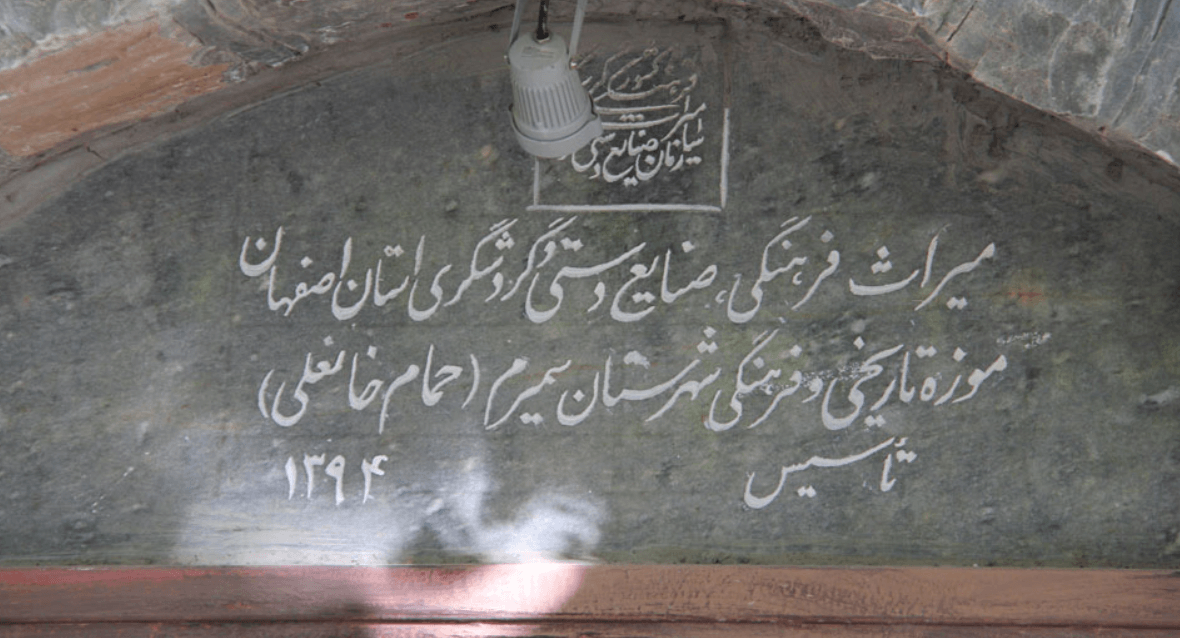 سازمان
میراث
صنایع دستی
میراث فرهنگی، صنایع دستی و گردشگری استان اصفهان
موزه تاریخی و فرهنگی شهرستان سمیرم (حمام خانعلی)
تأسیس ۱۳۹۴